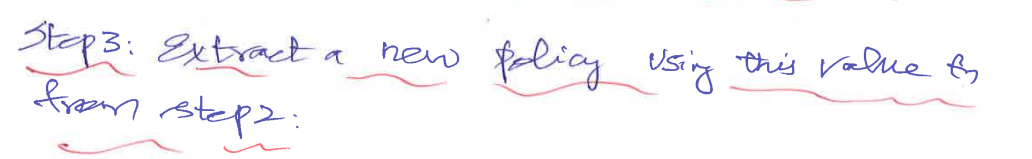 Step3: Extract a new policy using this value fn
from step2: